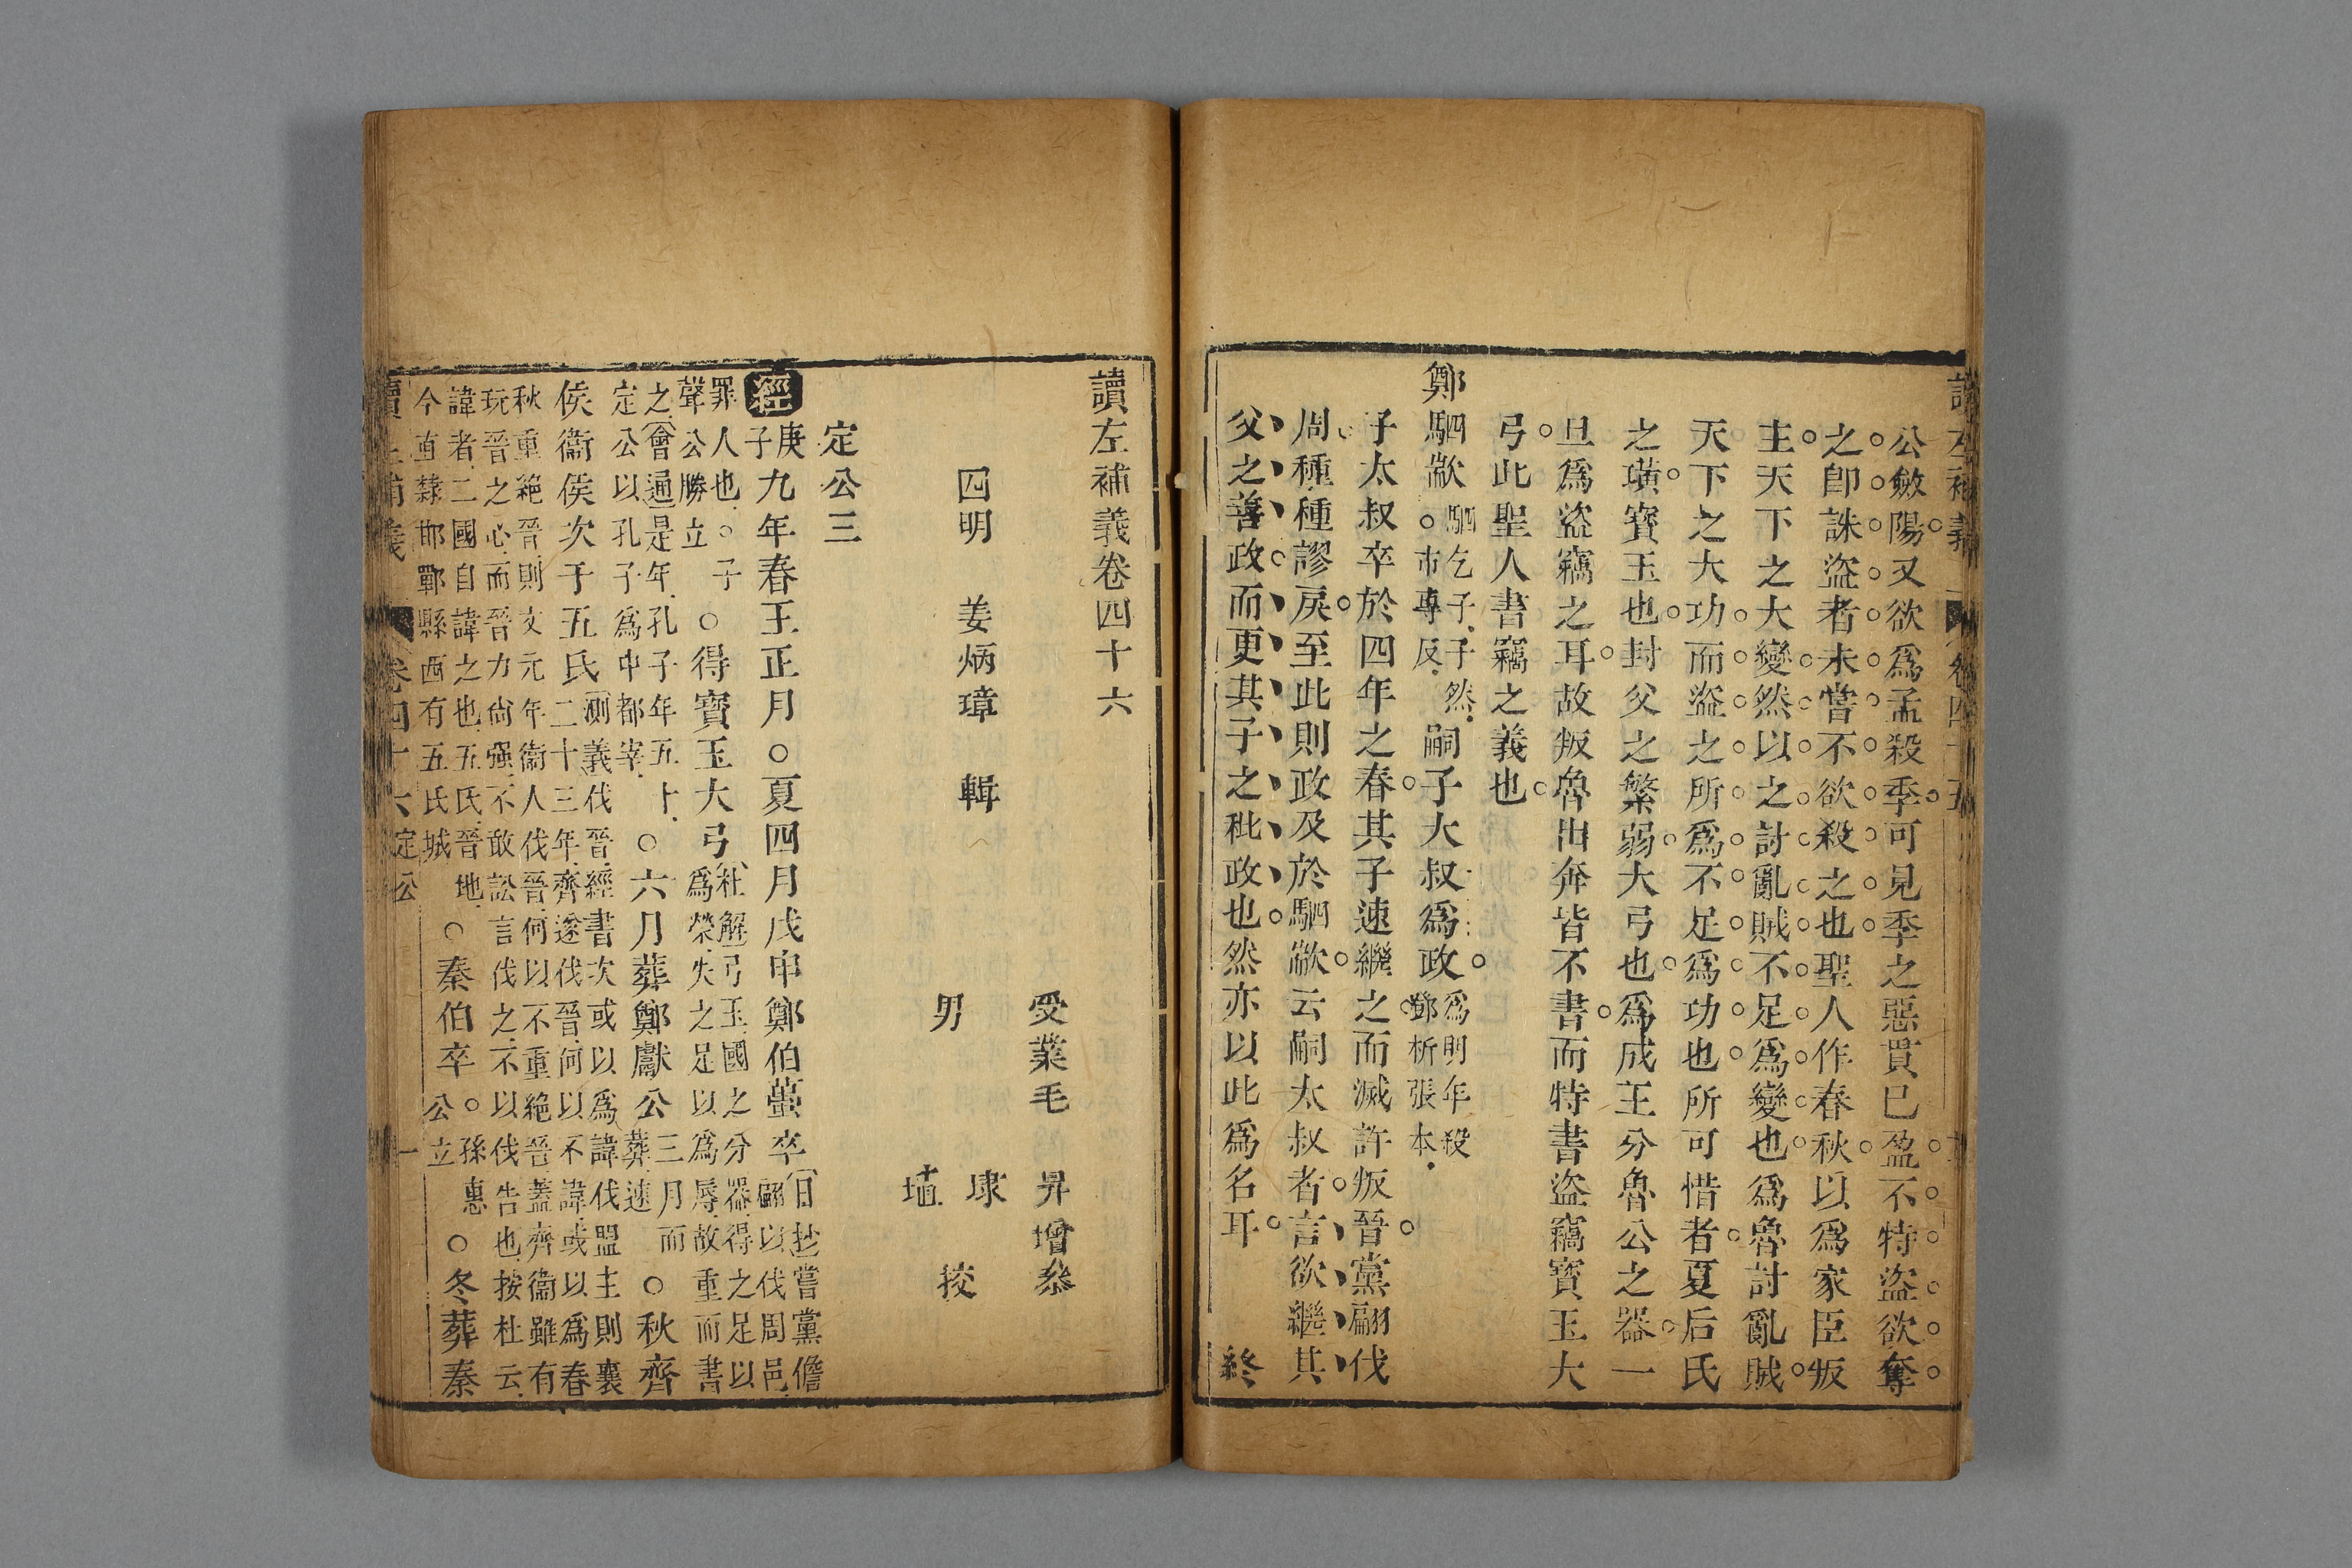 公斂陽又欲爲孟殺季可見季之惡貫已盈不特盜欲奪
之卽誅盜者未嘗不欲殺之也聖人作春秋以爲家臣叛
主天下之大變然以之討亂賊不足爲變也爲魯討亂賊
天下之大功而盜之所爲不足爲功也所可惜者夏后氏
之璜寶玉也封父之繁弱大弓也爲成王分魯公之器一
旦爲盜竊之耳故叛魯出奔皆不書而特書盜竊寶玉大
弓此聖人書竊之義也
鄭駟歂駟乞子子然○市專反嗣子大叔爲政爲明年殺鄧析張本
子太叔卒於四年之春其子速繼之而滅許叛晉黨翩伐
周種種謬戾至此則政及於駟歂云嗣太叔者言欲繼其
父之善政而更其子之秕政也然亦以此爲名耳 終
讀左補義卷四十六
受業毛昇增叅
四明 姜炳璋 輯
男 埭 埴 挍
定公三
經庚子九年春王正月○夏四月戊申鄭伯蠆卒日抄嘗黨儋翩以伐周邑
罪人也○子聲公勝立○得寶玉大弓杜解弓玉國之分器得之足以爲榮失之足以爲辱故重而書
之會通是年孔子年五十定公以孔子爲中都宰○六月葬鄭獻公三月而葬速○秋齊
侯衞侯次于五氏測義伐晉經書次或以爲諱伐盟主則襄二十三年齊遂伐晉何以不諱或以爲春
秋重絕晉則文元年衞人伐晉何以不重絕晉蓋齊衞雖有玩晉之心而晉力尙强不敢訟言伐之不以伐告也按杜云
諱者二國自諱之也五氏晉地今直隸邯鄲縣西有五氏城○秦伯卒○孫惠公立○冬葬秦